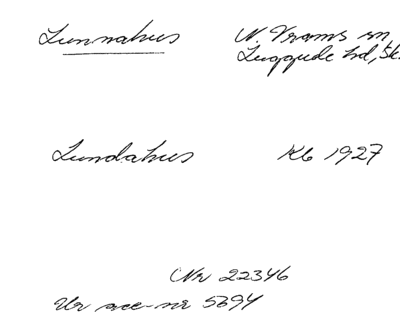 Lunnahus N. Vrams sn,
Luggude hd, Sk.
Lundahus Kb 1927
Nr 22346
Ur acc-nr 5394